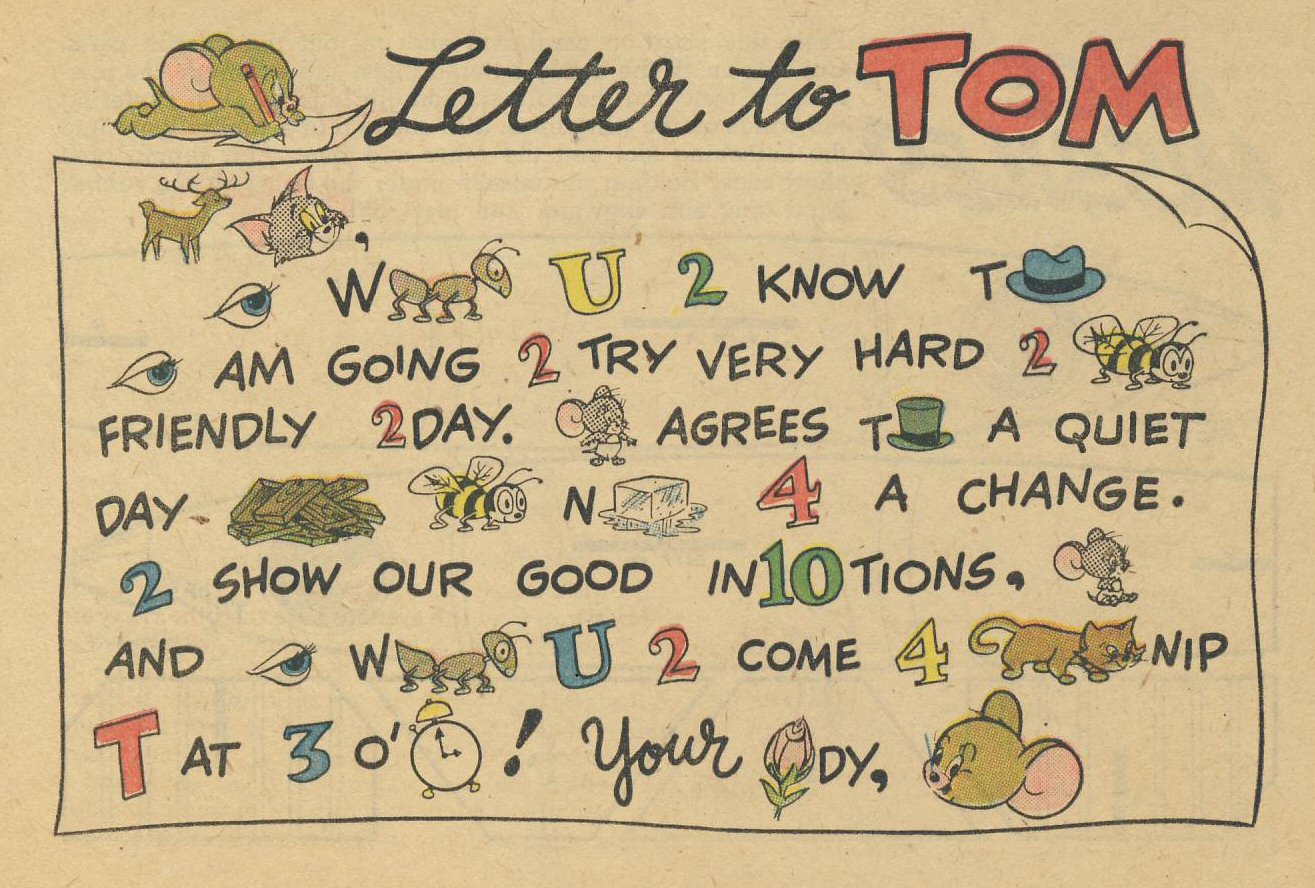 Letter to TOM
,
W U 2 KNOW T
AM GOING 2 TRY VERY HARD 2
FRIENDLY 2DAY. AGREES T A QUIET
DAY N 4 A CHANGE.
2 SHOW OUR GOOD IN10TIONS,
AND W U 2 COME 4 NIP
T AT 3 O' ! Your DY,